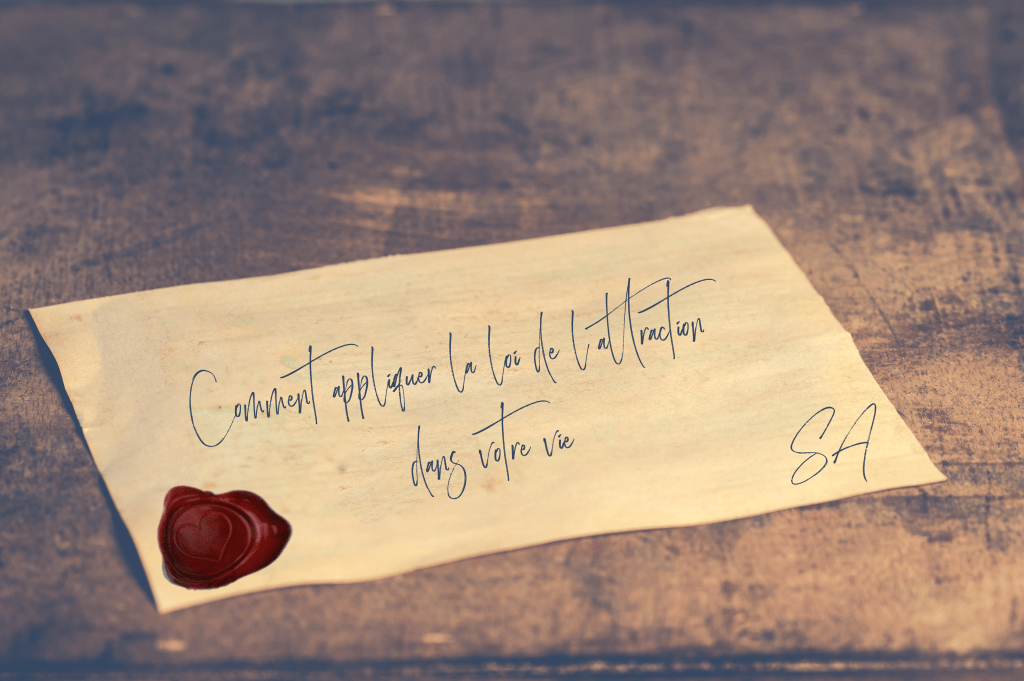 Comment appliquer la loi de l'attraction
dans votre vie
SA